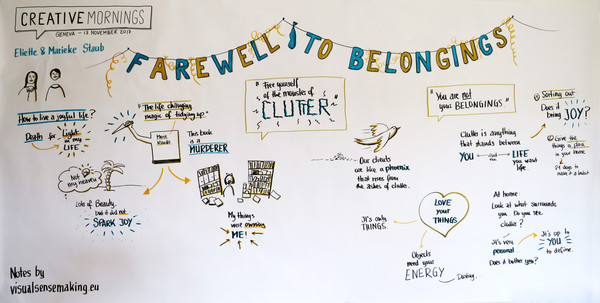 CREATIVEMORNINGS
GENEVA - 17 NOVEMBER 2017
Eliette & Marieke Staub
FAREWELL TO BELONGINGS
How to live a joyful life?
Death for Light in my LIFE
"The life changing
magic of tidying up."
Marie Kondo
This book
is a
MURDERER
"Free yourself
of the monster of
CLUTTER"
"You are not
your BELONGINGS"
① Sorting out
Does it
bring JOY?
② Give the
things a place
in your home
21 days to
make it a habit
Clutter is anything
that stands between
YOU and the LIFE
you want
Not
my heaven
Lots of Beauty,
but it did not
SPARK JOY
My things
were owning
ME!
Our clients
are like a phoenix
that rises from
the ashes of clutter.
LOVE
your
THINGS
It's only
THINGS.
Objects
need your
ENERGY
At home:
Look at what surrounds
you. Do you see
clutter?
It's very
personal
Does it bother you?
It's up to
YOU
to define.
Notes by
visualsensemaking.eu